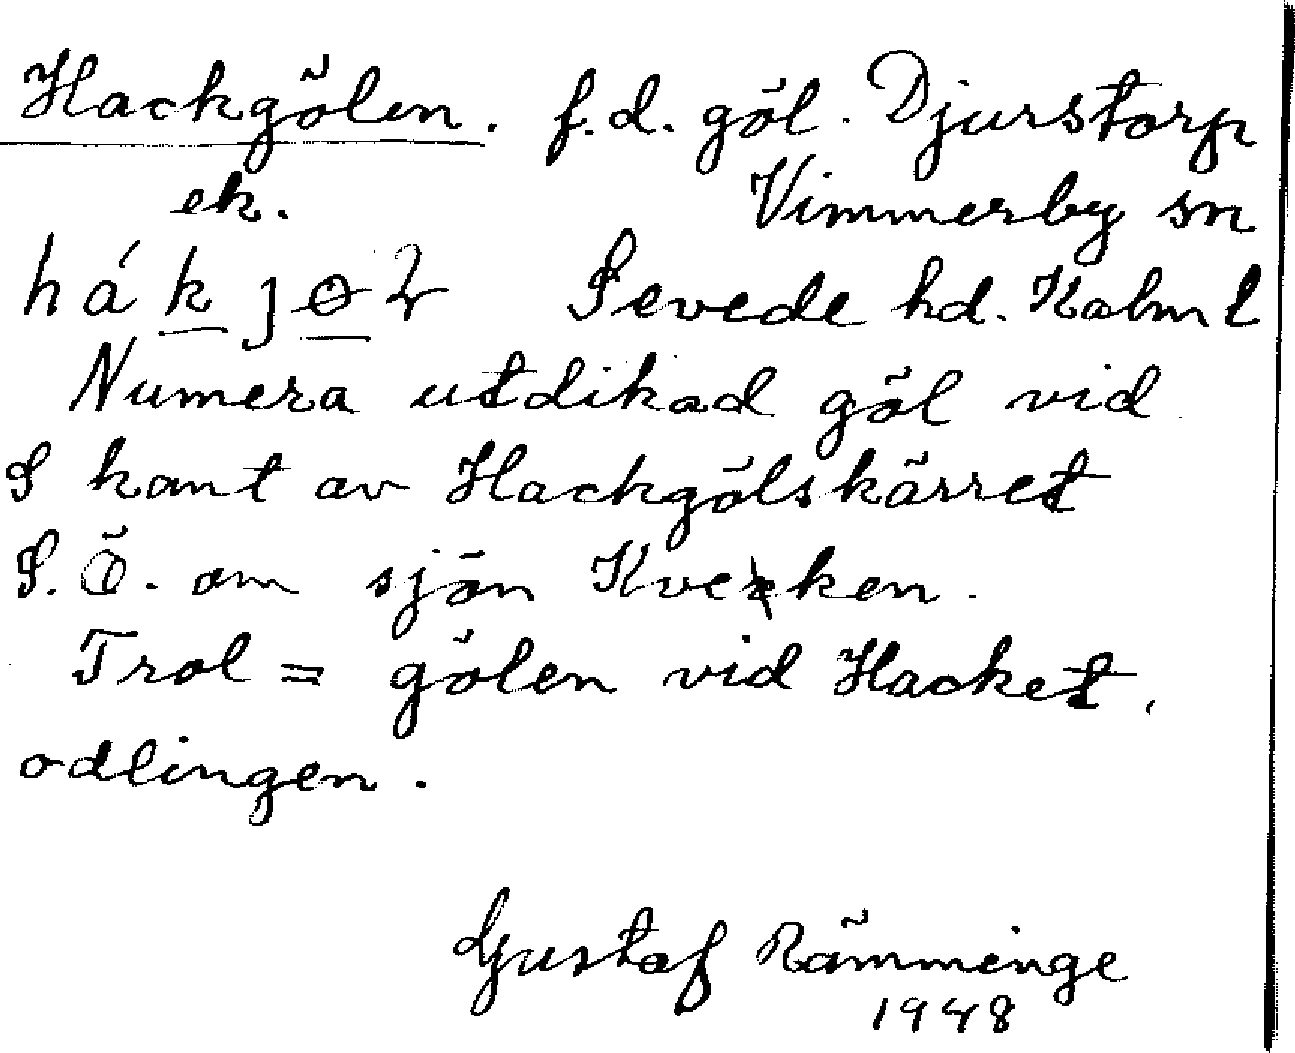 Hackgölen. f.d. göl. Djurstorp
ek. Vimmerby sn
hákjɵ Sevede hd. Kalm l
Numera utdikad göl vid
S kant av Hackgölskärret
S.Ö. om sjön Kvecken.
Trol = gölen vid Hacket,
odlingen.
Gustaf Rämminge
1948